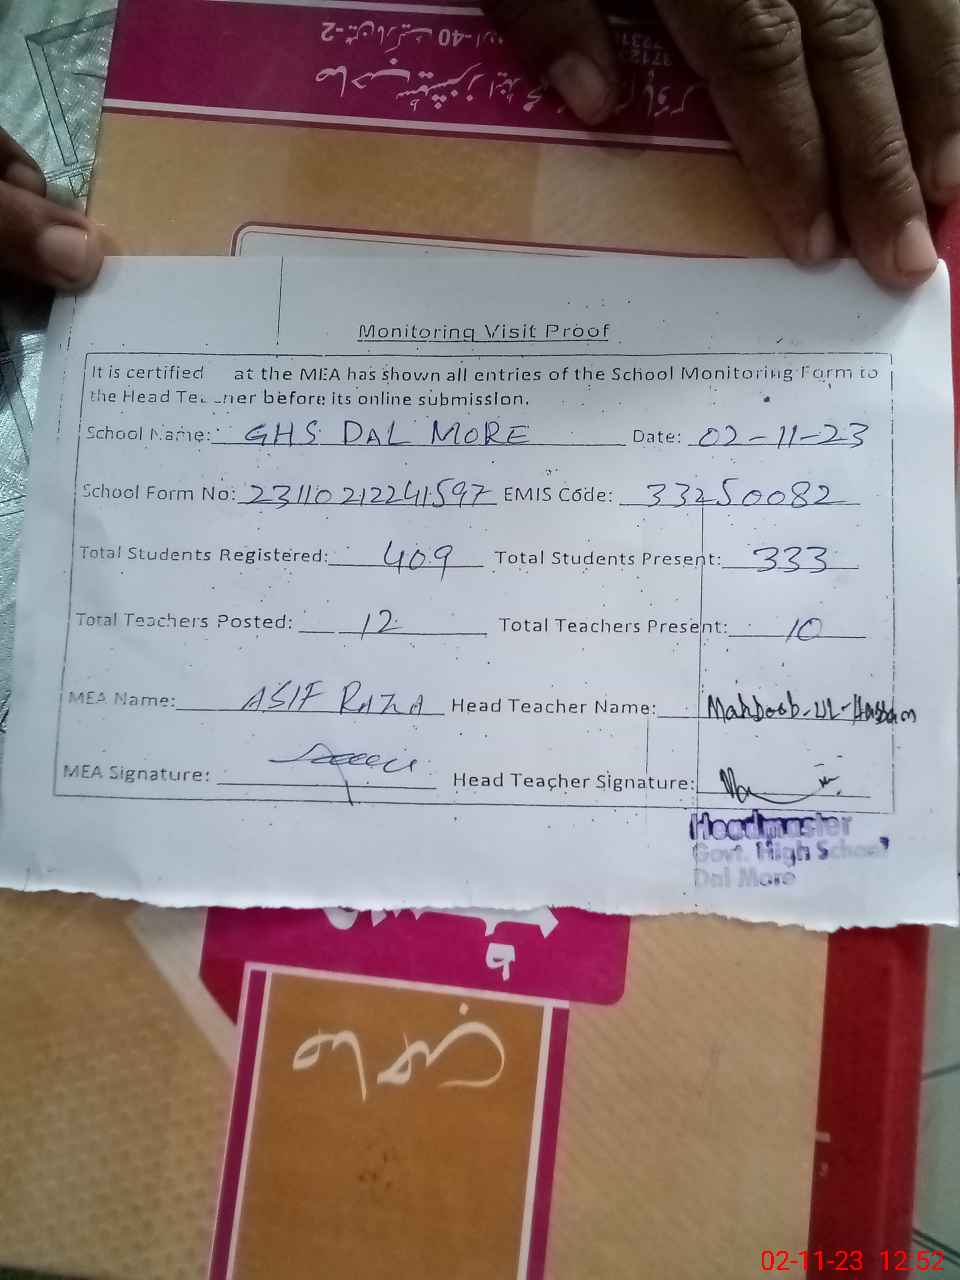 Monitoring Visit Proof
It is certified at the MEA has shown all entries of the School Monitoring Form to
the Head Te ner before its online submission.
School Name: GHS DAL MORE Date: 02-11-23
School Form No: 23110212241597 EMIS Code: 33250082
Total Students Registered: 409 Total Students Present: 333
Total Teachers Posted: 12 Total Teachers Present: 10
MEA Name: ASIF RAZA Head Teacher Name: Mahboob-Ul-Hassan
MEA Signature: Head Teacher Signature:
Headmaster
Govt. High School
Dal More
02-11-23 12:52